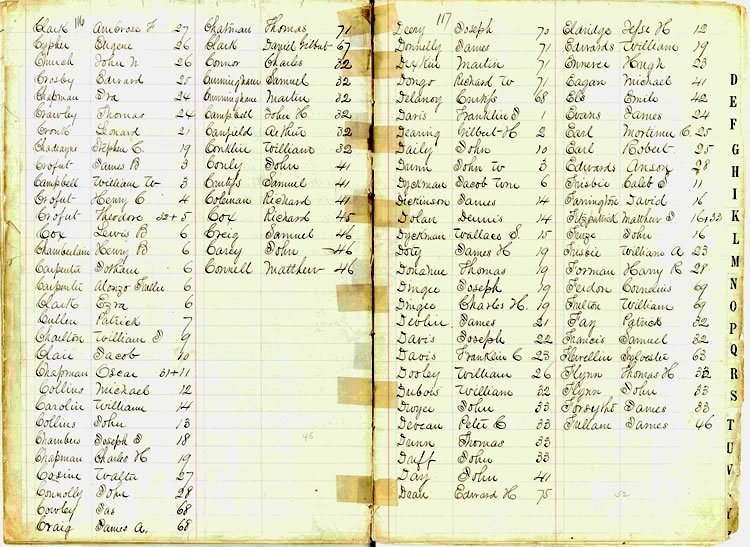 116
Clark Ambrose F 27
Cypher Eugene 26
Church John N 26
Crosby Edward 25
Chapman Ira 24
Crawley Thomas 24
Cronk Leonard 21
Chadeayne Stephen C 19
Crofut James B 3
Campbell William W 3
Crofut Henry C 4
Crofut Theodore 32+5
Cox Lewis B 6
Chamberlain Henry B 6
Carpenter Jotham 6
Carpenter Alonzo 6
Clark Ezra 6
Cullen Patrick 7
Charlton William S 9
Clair Jacob 10
Chapman Oscar 31+11
Collins Michael 12
Carolin William 14
Collins John 13
Chambers Joseph S 18
Chapman Charles H 19
Cosine Walter 27
Connolly John 28
Cowley Jas 68
Craig James A. 68
Chatman Thomas 71
Clark Daniel Gilbert 67
Connor Charles 32
Cunningham Samuel 32
Cunningham Martin 32
Campbell John H 32
Canfield Arthur 32
Conklin William 32
Conly John 41
Curtiss Samuel 41
Coleman Richard 41
Cox Richard 45
Creig Samuel 46
Carey John 46
Connell Matthew 46
45
117
Deery Joseph 70
Donnelly James 71
Martin 71
Dongo Richard W 71
Delanoy 68
Davis Franklin S 1
Dearing Gilbert H 2
Daily John 10
Dunn John W 3
Dyckman Jacob 6
Dickinson James 14
Dolan Dennis 14
Dyckman Wallace S 15
Doty James H 19
Donahue Thomas 19
Dingee Joseph 19
Dingee Charles H. 19
Devlin James 21
Davis Joseph 22
Davis Franklin C 23
Dooley William 26
Dubois William 32
Dwyer John 33
Deveau Peter C 33
Dunn Thomas 33
Duff John 33
Day John 41
Dean Edward H 75
Eldridge Jesse H 12
Edwards William 19
Hugh 23
Eagan Michael 41
Emile 42
Evans James 24
Earl Mortimer C. 25
Earl Robert 25
Edwards Anson 28
Frisbie Caleb S 11
Farrington David 16
Fitzpatrick Matthew S 16+33
John 16
Frisbie William A 23
Forman Harry R 28
Cornelius 69
Fulton William 69
Fay Patrick 32
Francis Samuel 32
Flewellin Sylvester 63
Flynn Thomas H 33
Flynn John 33
Forsythe James 33
Fullam James 46
52
D
E
F
G
H
I
K
L
M
N
O
P
Q
R
S
T
U
V
Y